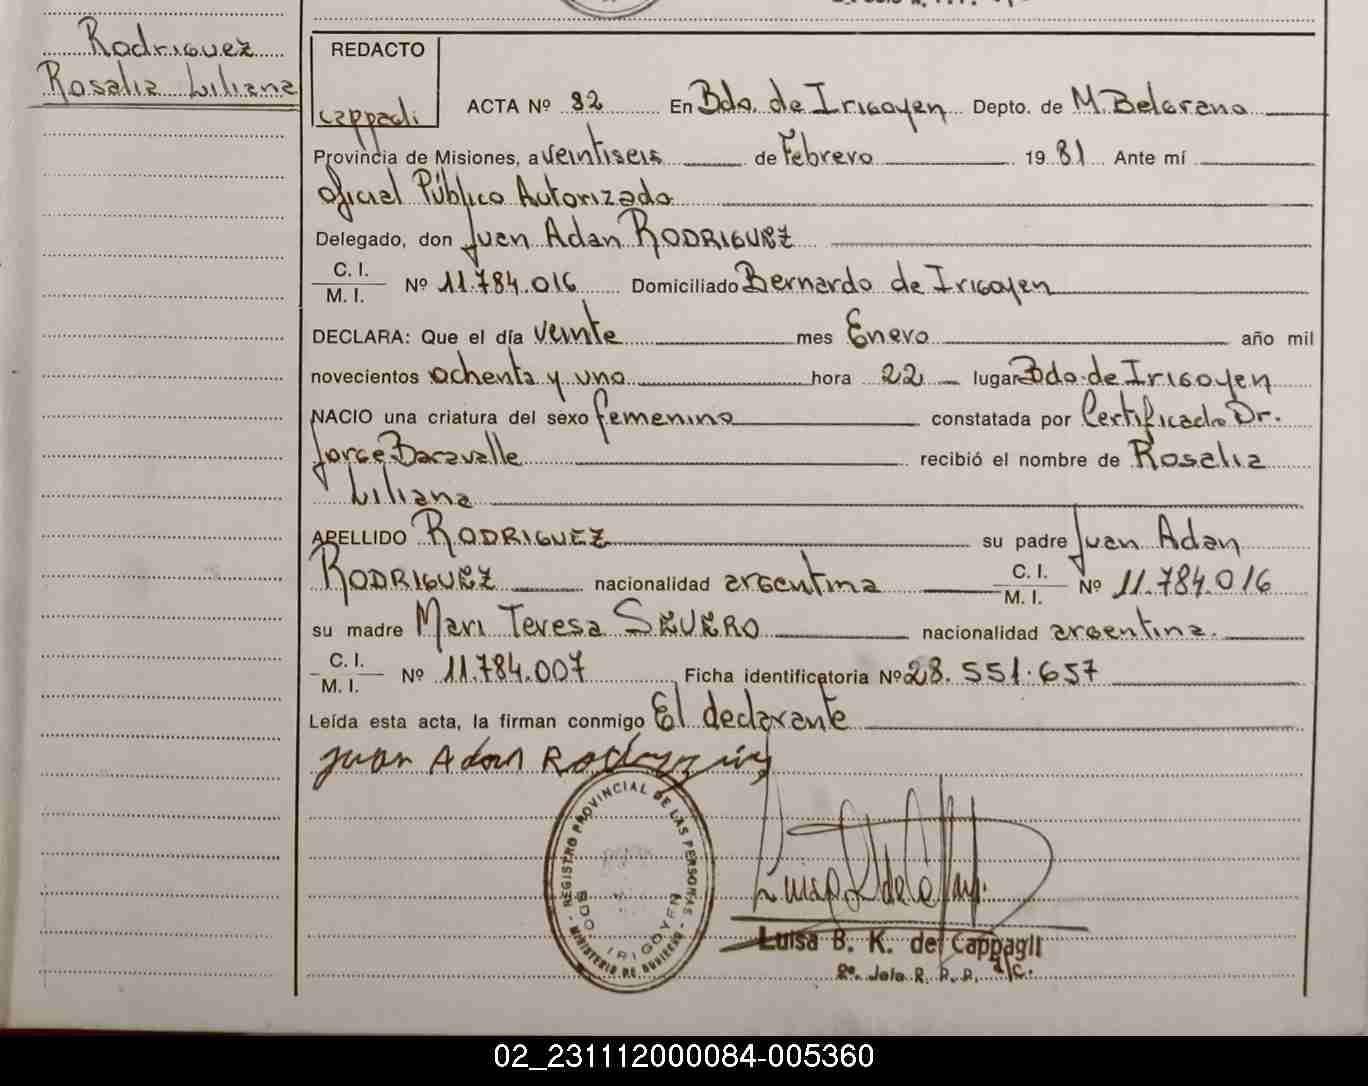 Rodriguez
Rosalia Liliana
REDACTO
Cappagli
ACTA Nº 82 En Bdo. de Irigoyen Depto. de M. Belgrano
Provincia de Misiones, a veintiseis de Febrero 1981 Ante mí
Oficial Público Autorizado
Delegado, don Juan Adan RODRIGUEZ
C. I.
M. I. Nº 11.784.016 Domiciliado Bernardo de Irigoyen
DECLARA: Que el día veinte mes Enero año mil
novecientos ochenta y uno hora 22 lugar Bdo. de Irigoyen
NACIO una criatura del sexo femenino constatada por Certificado Dr.
Jorge Baravalle recibió el nombre de Rosalia
Liliana
APELLIDO RODRIGUEZ su padre Juan Adan
RODRIGUEZ nacionalidad argentina C. I.
M. I. Nº 11.784.016
su madre Mari Teresa SEVERO nacionalidad argentina.
C. I.
M. I. Nº 11.784.007 Ficha identificatoria Nº 28.551.657
Leída esta acta, la firman conmigo El declarante
Juan Adan Rodriguez
REGISTRO PROVINCIAL DE LAS PERSONAS
BDO IRIGOYEN
- MINISTERIO DE GOBIERNO -
Luisa B. K. de Cappagli
2º. Jefe R. P. P. a/c.
02_231112000084-005360